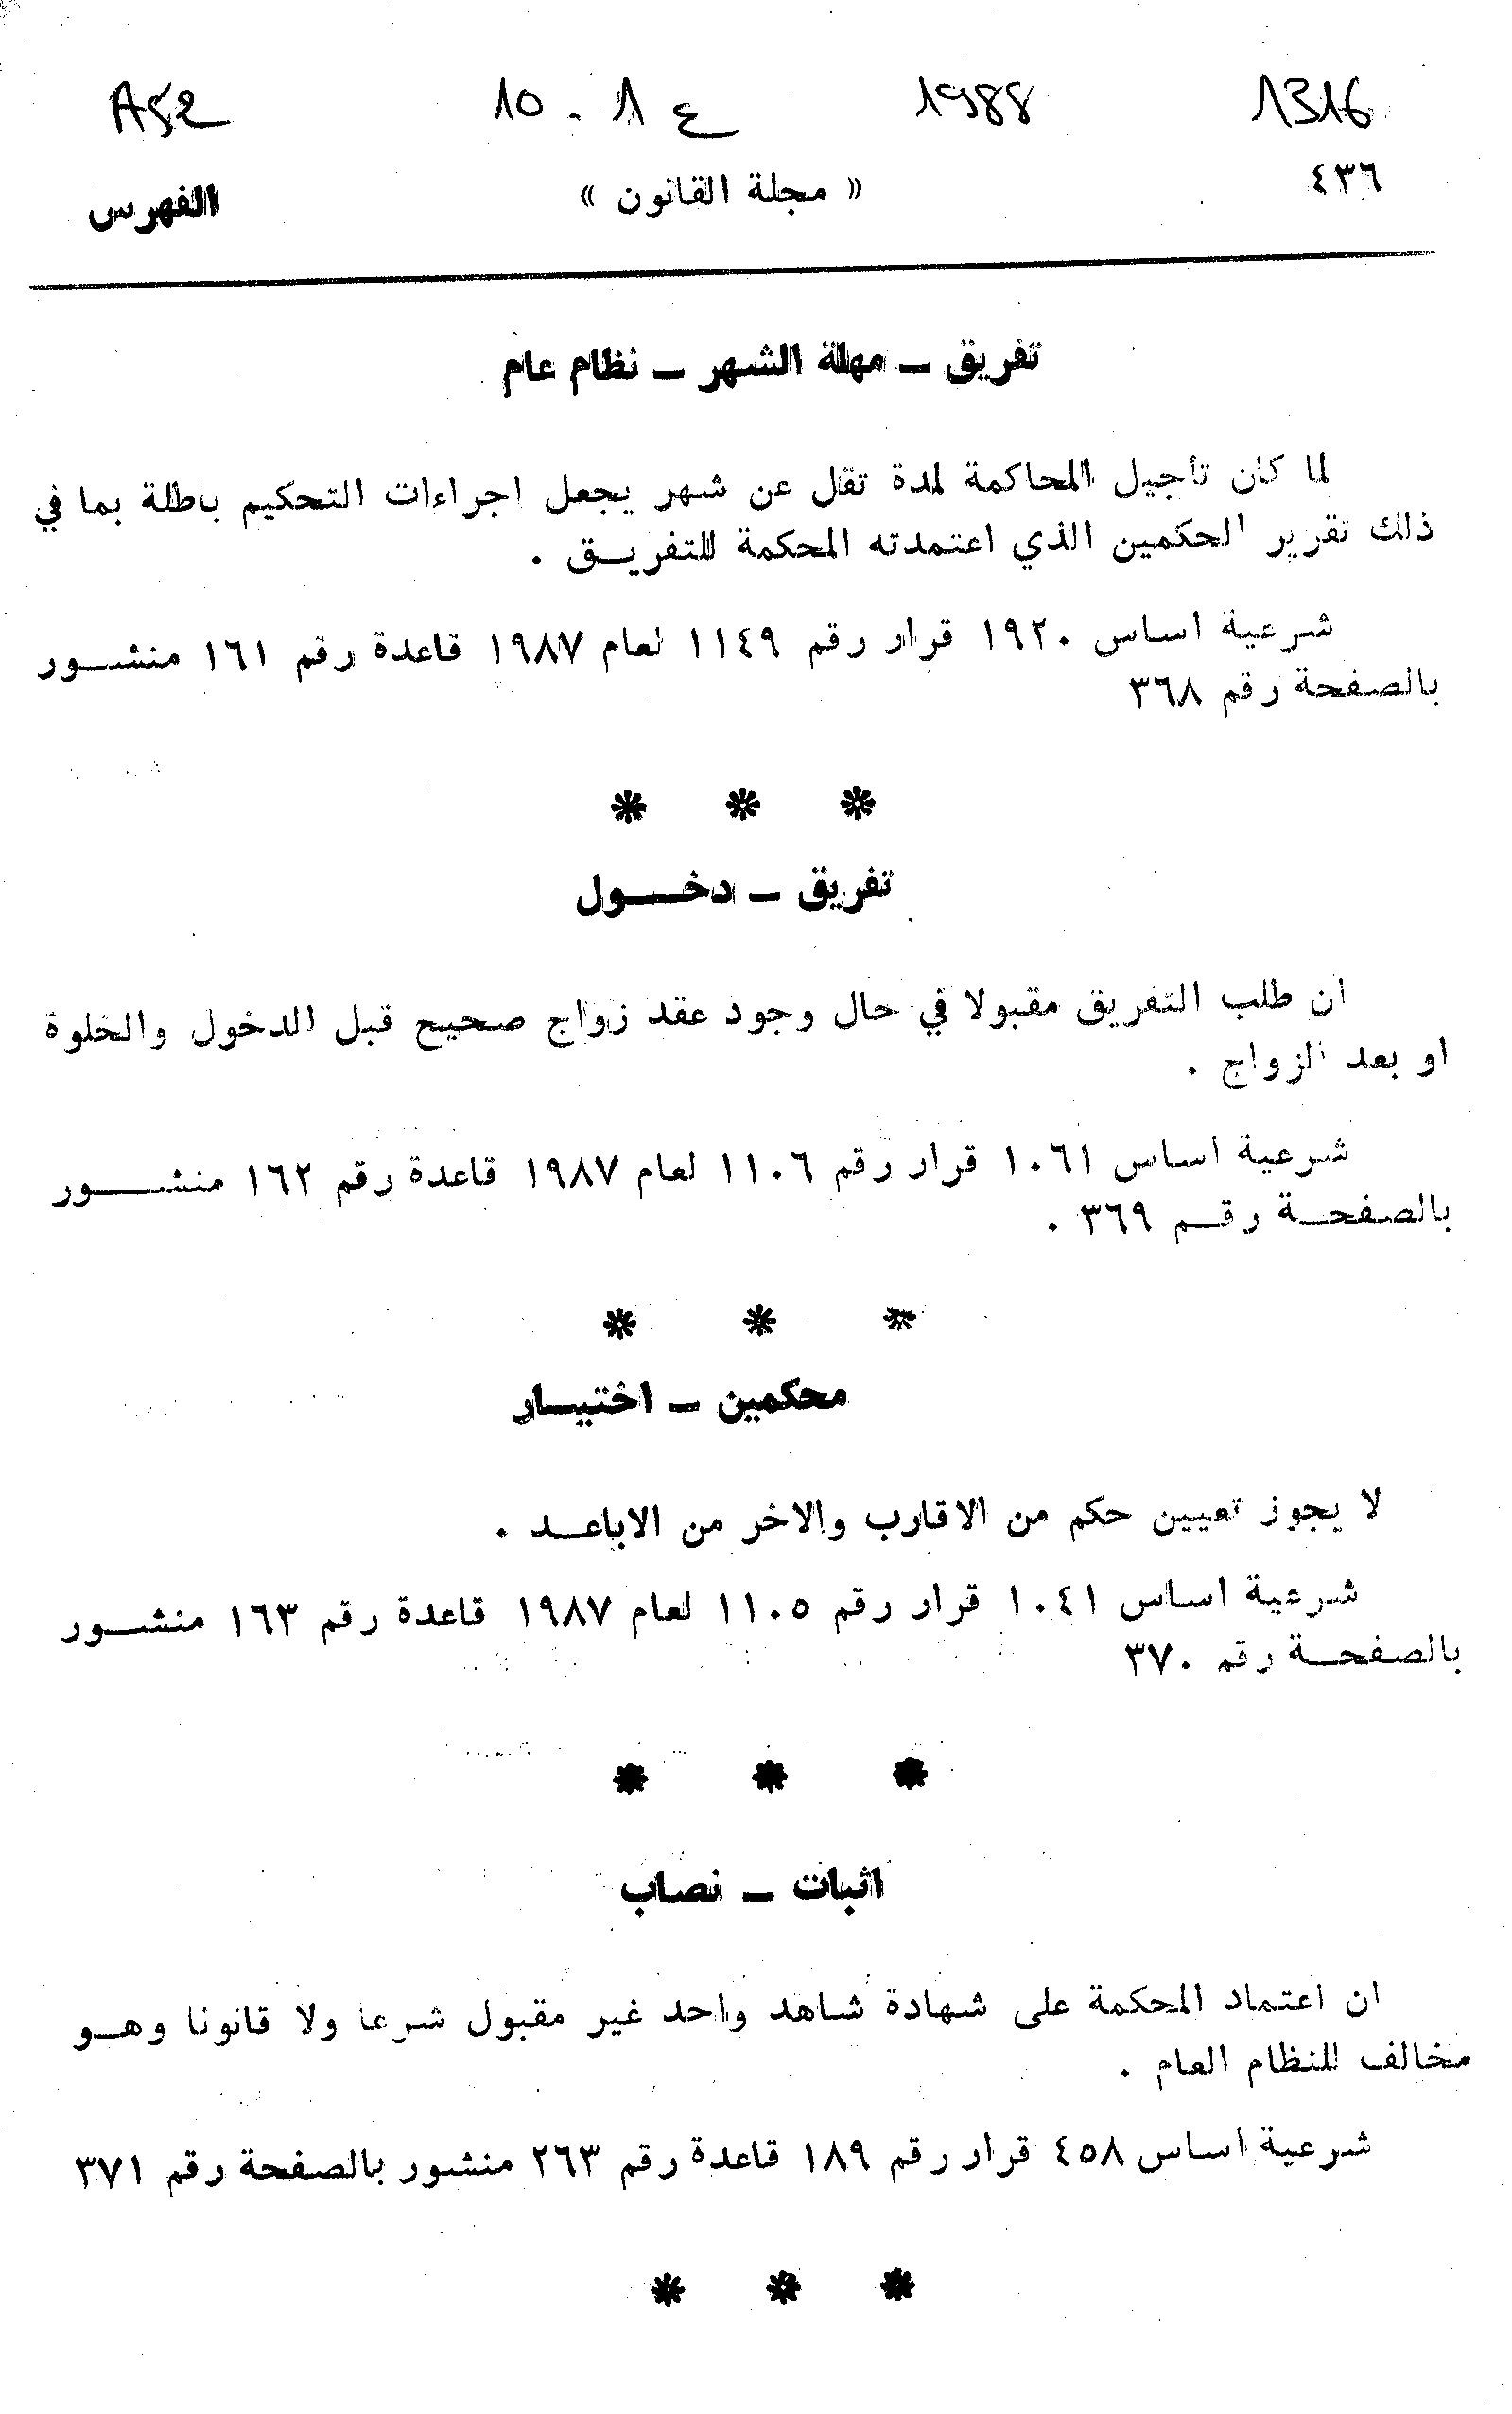 1316 1988 ع 1 - 10 A52
٤٣٦ « مجلة القانون » الفهرس
تفريق ــ مهلة الشهر ــ نظام عام
لما كان تأجيل المحاكمة لمدة تقل عن شهر يجعل اجراءات التحكيم باطلة بما في
ذلك تقرير الحكمين الذي اعتمدته المحكمة للتفريــق .
شرعية اساس ١٩٢٠ قرار رقم ١١٤٩ لعام ١٩٨٧ قاعدة رقم ١٦١ منشــور
بالصفحة رقم ٣٦٨
* * *
تفريق ــ دخـــول
ان طلب التفريق مقبولا في حال وجود عقد زواج صحيح قبل الدخول والخلوة
او بعد الزواج .
شرعية اساس ١٠٦١ قرار رقم ١١٠٦ لعام ١٩٨٧ قاعدة رقم ١٦٢ منشــــور
بالصفحــة رقــم ٣٦٩ .
* * *
محكمين ــ اختيــار
لا يجوز تعيين حكم من الاقارب والاخر من الاباعــد .
شرعية اساس ١٠٤١ قرار رقم ١١٠٥ لعام ١٩٨٧ قاعدة رقم ١٦٣ منشــور
بالصفحــة رقم ٣٧٠
* * *
اثبات ــ نصاب
ان اعتماد المحكمة على شهادة شاهد واحد غير مقبول شرعا ولا قانونا وهــو
مخالف للنظام العام .
شرعية اساس ٤٥٨ قرار رقم ١٨٩ قاعدة رقم ٢٦٣ منشور بالصفحة رقم ٣٧١
* * *